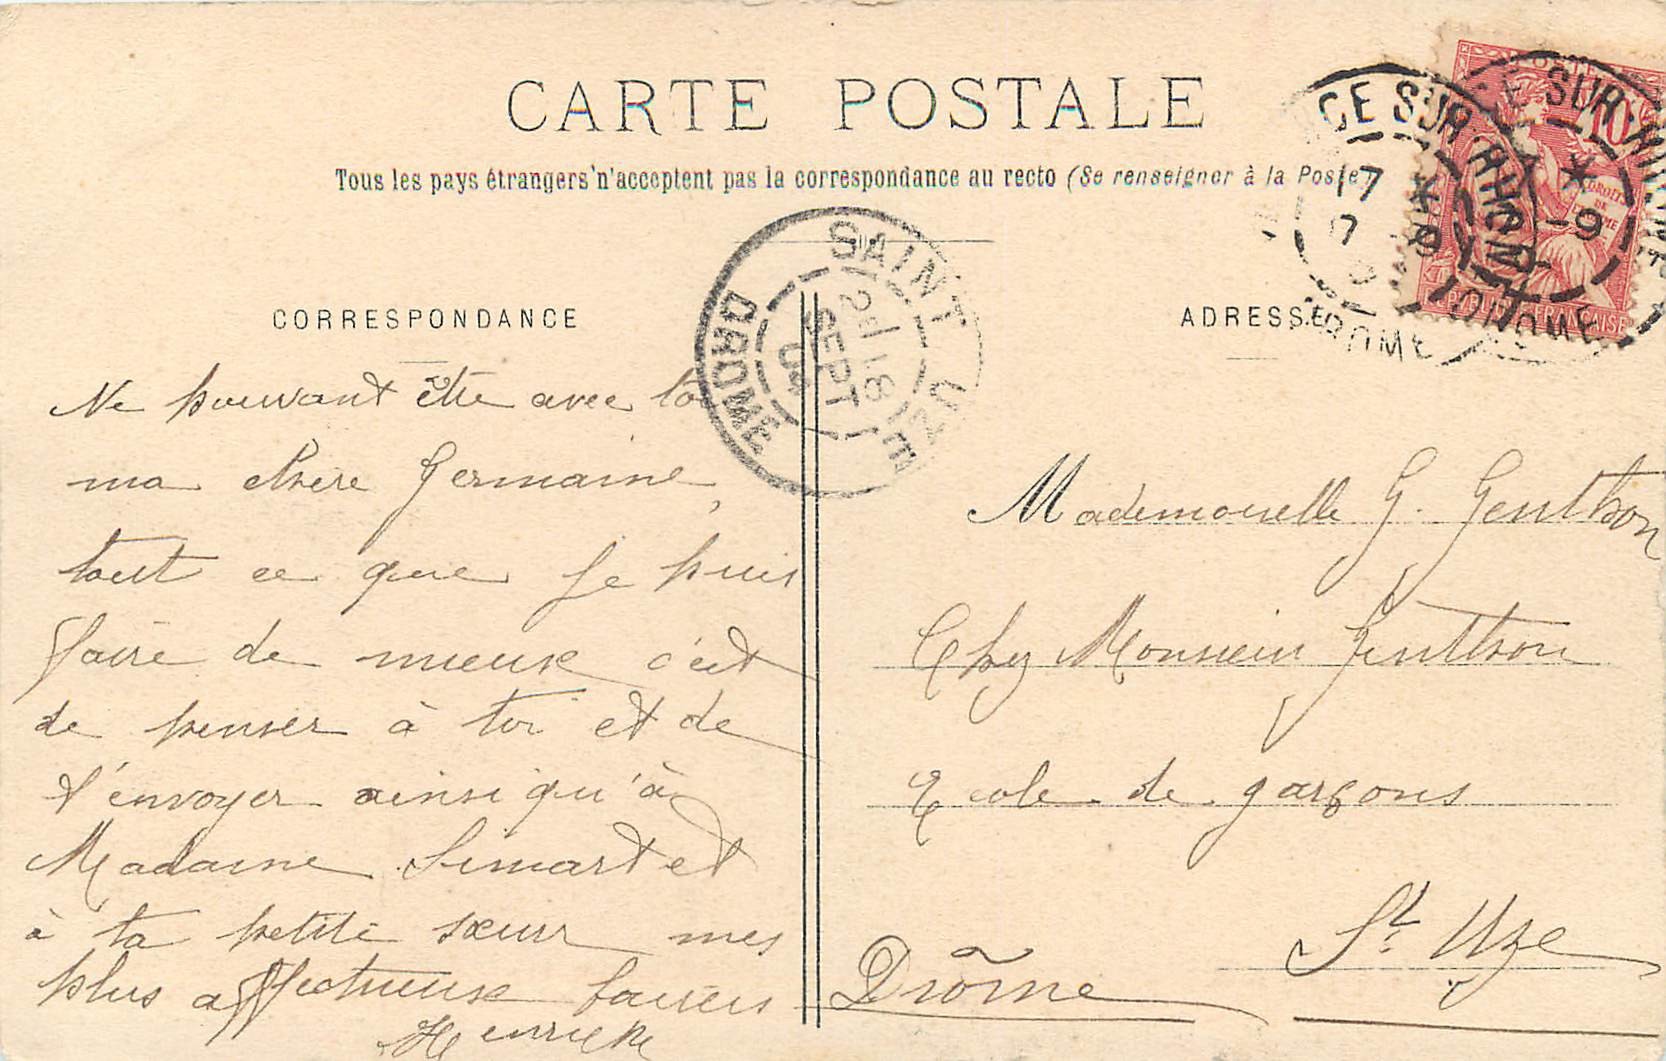 CARTE POSTALE
Tous les pays étrangers n'acceptent pas la correspondance au recto (Se renseigner à la Poste
CORRESPONDANCE
Ne pouvant être avec toi
ma chère Germaine,
tout ce que je puis
faire de mieux c'est
de penser à toi et de
t'envoyer ainsi qu'à
Madame Simart et
à ta petite sœur mes
plus affectueux baisers
SAINT UZE
2E 18
SEPT
04
DROME
ADRESSE
Mademoiselle G. Genthon
Chez Monsieur Genthon
Ecole de garçons
St Uze
Drôme
CE SUR RHONE
17
9
DROME
CE SUR RHONE
9
DROME
POSTES
10
DROITS
DE
REPUBLIQUE FRANÇAISE